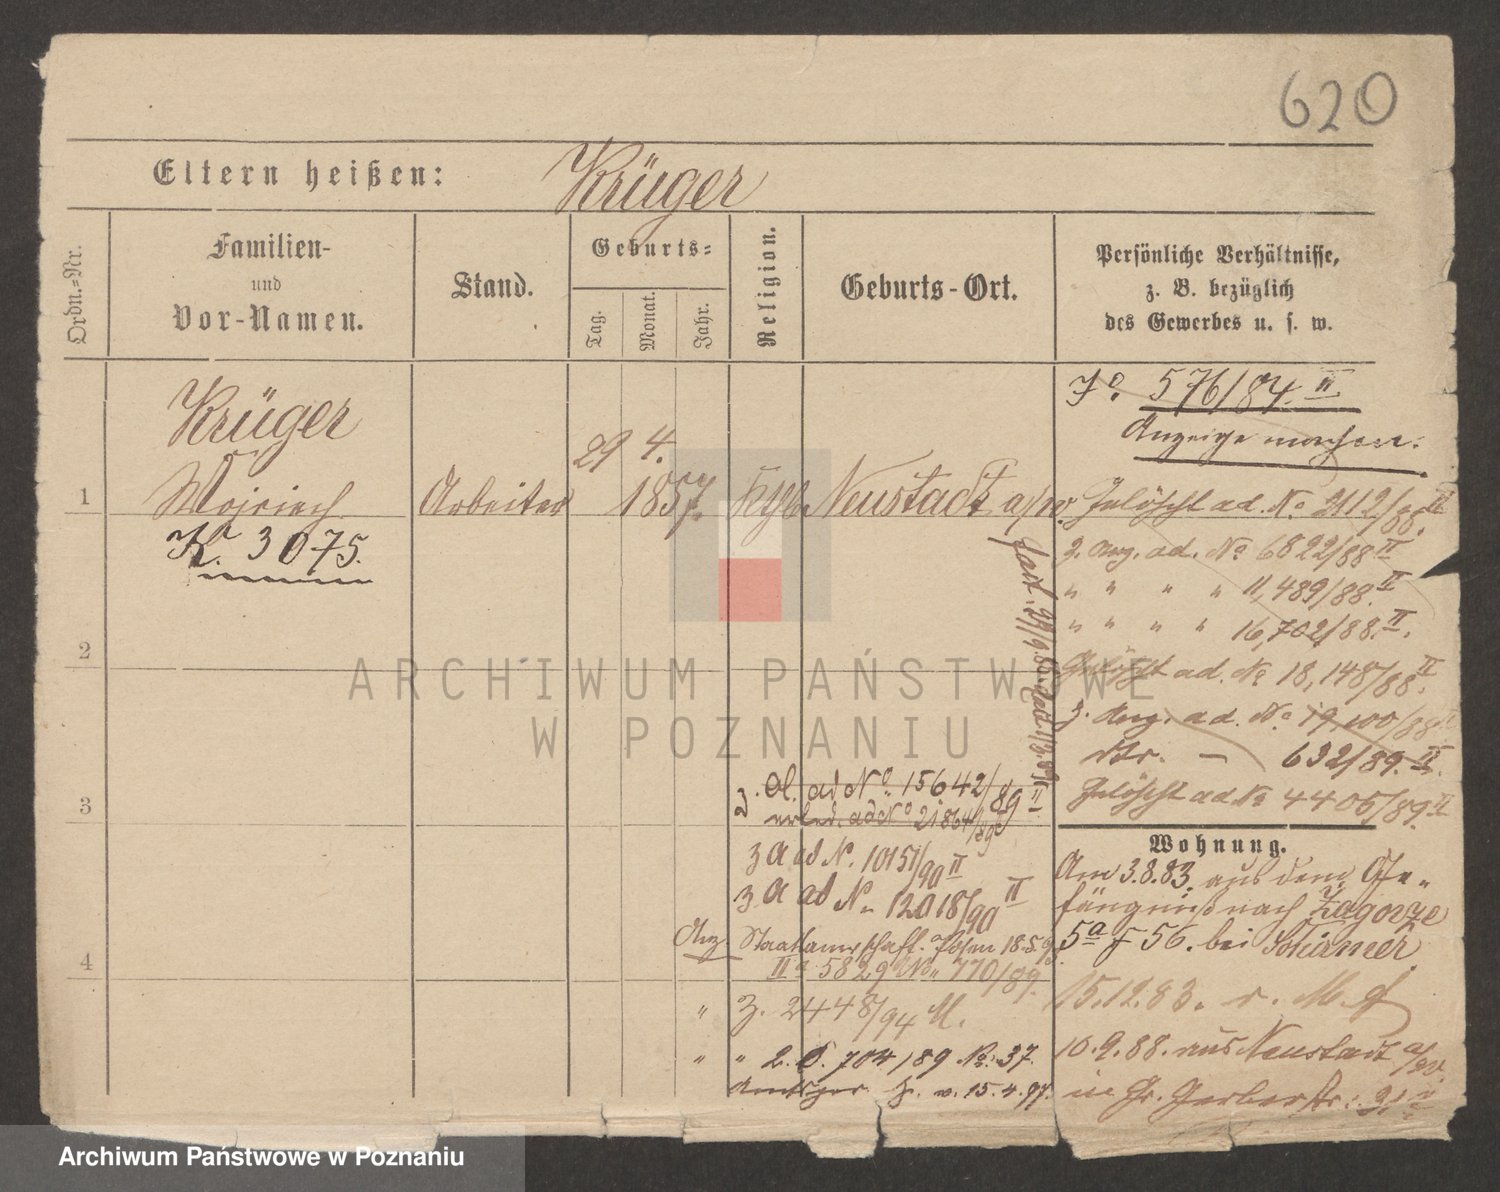 620
Eltern heißen: Krüger
Ordn.-Nr.
Familien-
und
Vor-Namen.
Stand.
Geburts-
Tag.
Monat.
Jahr.
Religion.
Geburts-Ort.
Persönliche Verhältnisse,
z. B. bezüglich
des Gewerbes u. s. w.
576/84. II
Anzeige machen.
Krüger
29 4.
1 Wojciech Arbeiter 1857. Kth. Neustadt a/W.
K. 3075.
Gelöscht ad. No 2112/88. II
z. Anz. ad. No 6822/88 II
" " " " 11,489/88. II
" " " " 16,702/88. II.
2
Gelöscht ad. No 18,148/88. II
z. Anz. ad. No 19,100/88 II
632/89. II.
Gelöscht ad No 4405/89. II
3
z. A. ad No 15642/89 II
erled. ad No 21864/89
z A ad N. 10151/90 II
z A ad No 12018/90 II
Wohnung.
Am 3.8.83. aus dem Ge-
fängniß nach Zagorze
5a 56. bei Schirmer
4
Anz. Staatsanwschaft. Posen 18.5.
IIa 5829 No 770/89.
" Z. 2448/94 M.
" " 2. D. 704/89 No: 37.
v. 15.4.97.
15.12.83. v. M.
10.9.88. aus Neustadt a/W.
in Gr. Gerberstr:
ARCHIWUM PAŃSTWOWE
W POZNANIU
Archiwum Państwowe w Poznaniu